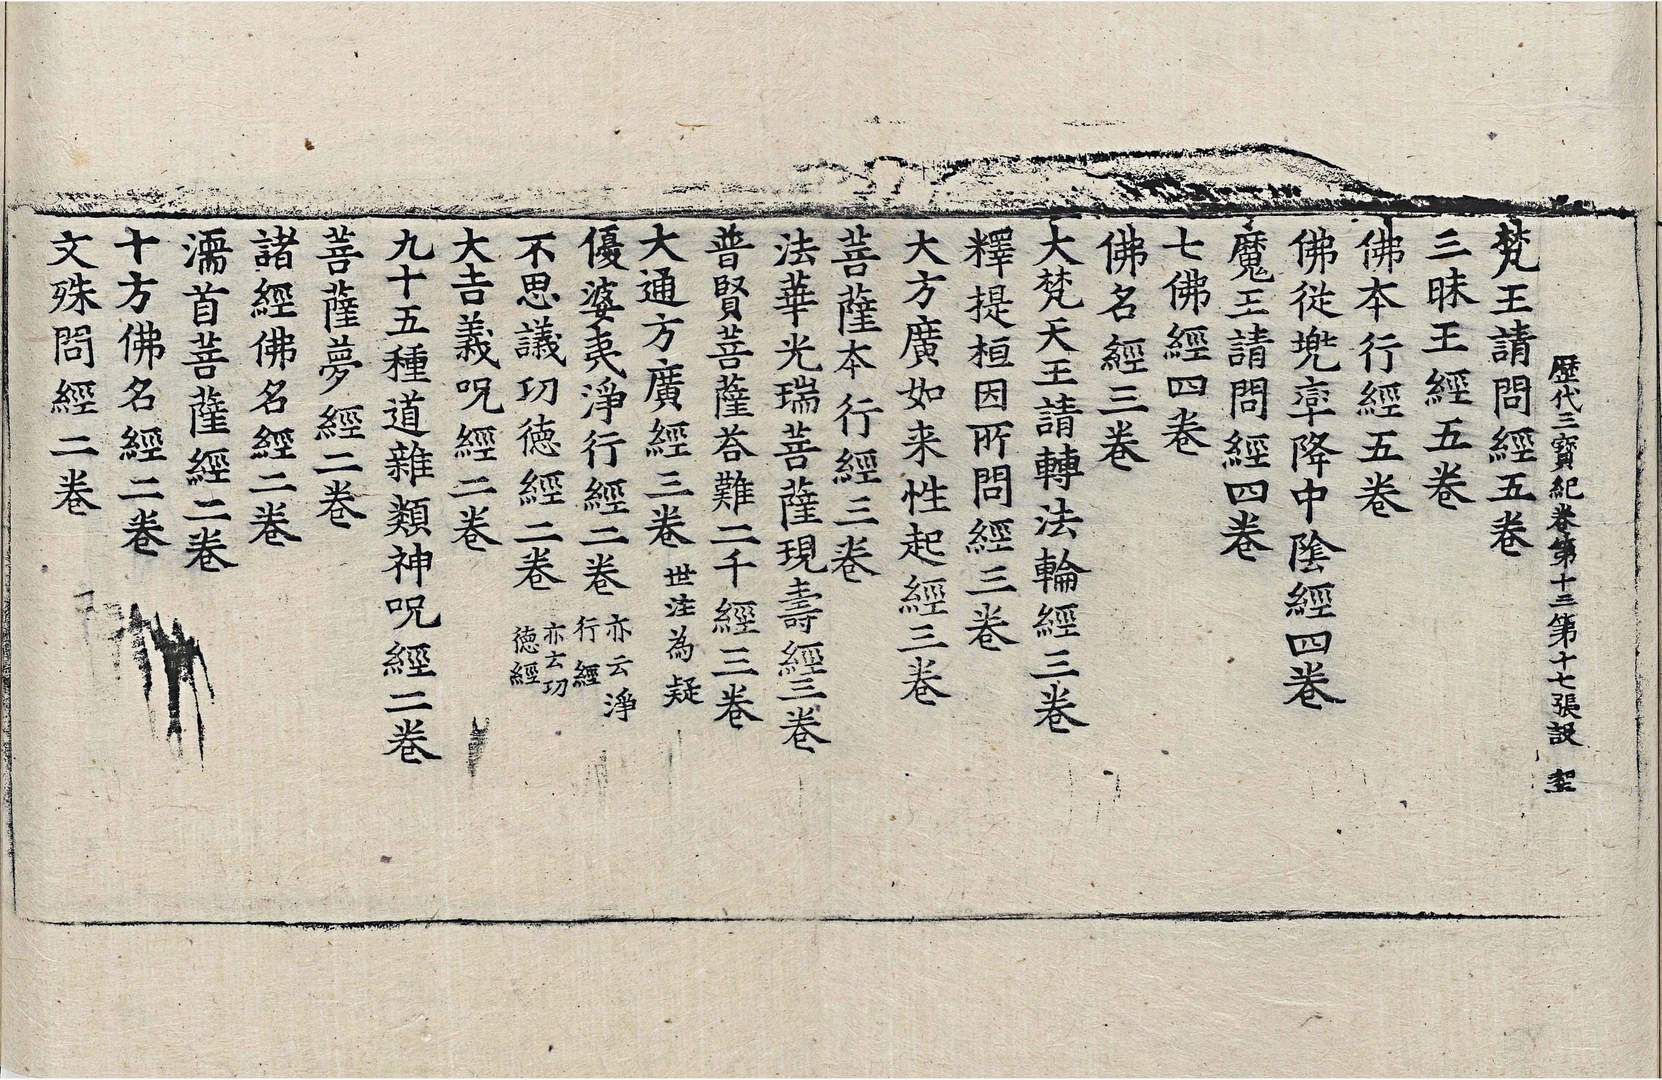 歷代三寶紀卷第十三第十七張設
梵王請問經五卷
三昧王經五卷
佛本行經五卷
佛從兠率降中陰經四卷
魔王請問經四卷
七佛經四卷
佛名經三卷
大梵天王請轉法輪經三卷
釋提桓因所問經三卷
大方廣如来性起經三卷
菩薩本行經三卷
法華光瑞菩薩現壽經三卷
普賢菩薩荅難二千經三卷
大通方廣經三卷 世注為疑
優婆夷淨行經二卷 亦云淨行經
不思議功徳經二卷 亦云功徳經
大吉義呪經二卷
九十五種道雜類神呪經二卷
菩薩夢經二卷
諸經佛名經二卷
濡首菩薩經二卷
十方佛名經二卷
文殊問經二卷